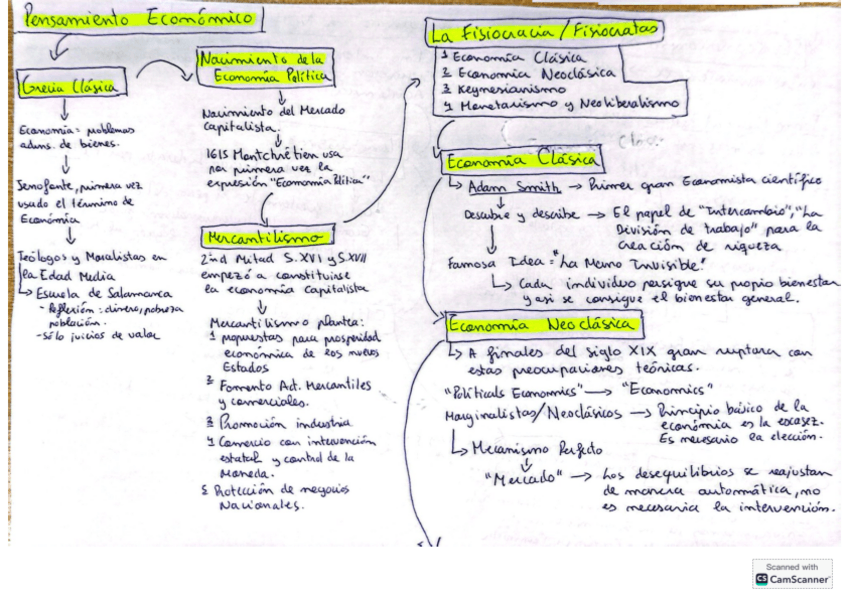 Pensamiento Económico
Grecia Clásica
Economía = problemas
adms. de bienes.
Jenofonte, primera vez
usado el término de
Económía
Teólogos y Moralistas en
la Edad Media
Escuela de Salamanca
- Reflexión: dinero, pobreza
población.
- Sólo juicios de valor
Nacimiento de la
Economía Política
Nacimiento del Mercado
Capitalista.
1615 Montchrétien usa
por primera vez la
expresión "Economía Política"
Mercantilismo
2ind Mitad S. XVI y S. XVII
empezó a constituirse
la economía Capitalista
Mercantilismo plantea:
1 propuestas para prosperidad
económica de los nuevos
Estados
2 Fomento Act. Mercantiles
y comerciales.
3 Promoción industria
4 Comercio con intervención
estatal y control de la
Moneda.
5 Protección de negocios
Nacionales.
La Fisiocracia / Fisiócratas
1 Economía Clásica
2 Economía Neoclásica
3 Keynesianismo
4 Monetarismo y Neoliberalismo
Economía Clásica
Adam Smith → Primer gran Economista científico
Descubre y describe → El papel de "Intercambio", "La
División de trabajo" para la
creación de riqueza
Famosa Idea = "La Mano Invisible"
Cada individuo persigue su propio bienestar
y asi se consigue el bienestar general.
Economía Neoclásica
A finales del siglo XIX gran ruptura con
estas preocupaciones teóricas.
"Politicals Economics" → "Economics"
Marginalistas/Neoclásicos → Principio básico de la
económia es la escasez.
Es necesario la elección.
Mecanismo Perfecto
"Mercado" → Los desequilibrios se reajustan
de manera automática, no
es necesaria la intervención.
Scanned with
CS CamScanner